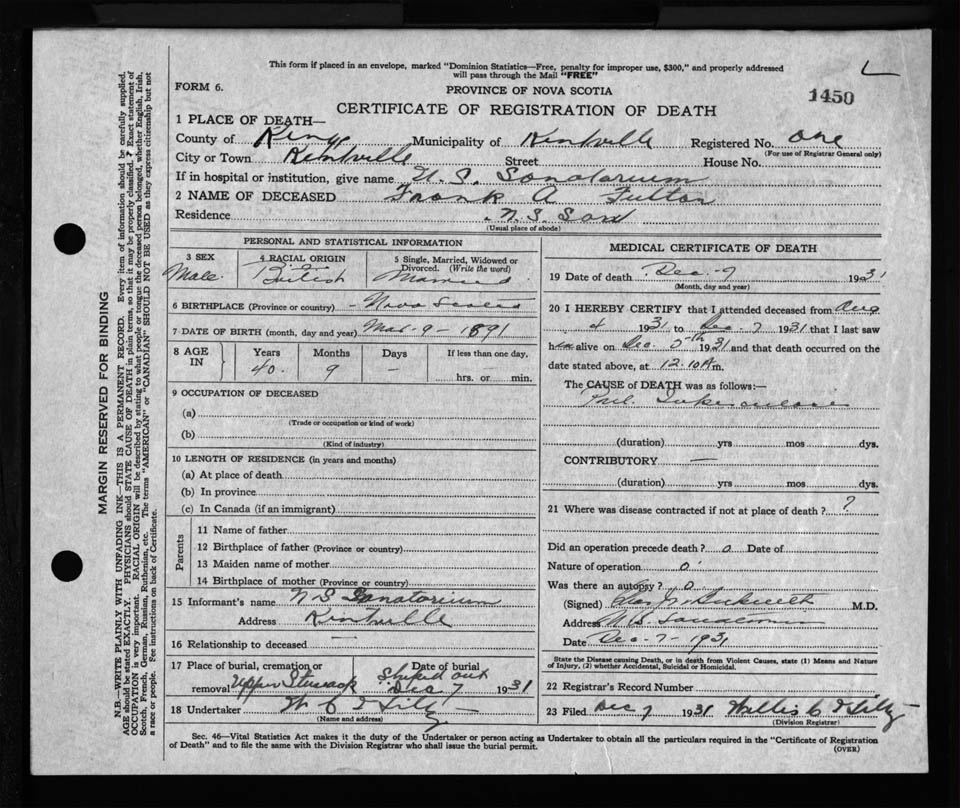 This form if placed in an envelope, marked "Dominion Statistics—Free, penalty for improper use, $300," and properly addressed
will pass through the Mail "FREE"
FORM 6.
PROVINCE OF NOVA SCOTIA
1450
CERTIFICATE OF REGISTRATION OF DEATH
1 PLACE OF DEATH—
County of Kings Municipality of Kentville Registered No. one
(For use of Registrar General only)
City or Town Kentville Street House No.
If in hospital or institution, give name N.S. Sanatorium
2 NAME OF DECEASED Frank A Fulton
Residence N.S. San
(Usual place of abode)
PERSONAL AND STATISTICAL INFORMATION
3 SEX 4 RACIAL ORIGIN 5 Single, Married, Widowed or
Divorced. (Write the word)
Male British Married
6 BIRTHPLACE (Province or country) Nova Scotia
7 DATE OF BIRTH (month, day and year) Mar-9-1891
8 AGE IN Years Months Days If less than one day,
40 9 - hrs. or min.
9 OCCUPATION OF DECEASED
(a)
(Trade or occupation or kind of work)
(b)
(Kind of industry)
10 LENGTH OF RESIDENCE (in years and months)
(a) At place of death
(b) In province
(c) In Canada (if an immigrant)
Parents
11 Name of father
12 Birthplace of father (Province or country)
13 Maiden name of mother
14 Birthplace of mother (Province or country)
15 Informant's name N S Sanatorium
Address Kentville
16 Relationship to deceased —
17 Place of burial, cremation or Date of burial
removal Upper Stewiacke Shipped out Dec 7 1931
18 Undertaker
(Name and address)
MEDICAL CERTIFICATE OF DEATH
19 Date of death Dec-7 1931
(Month, day and year)
20 I HEREBY CERTIFY that I attended deceased from Aug
4 1931 to Dec-7 1931 that I last saw
him alive on Dec. 1931 and that death occurred on the
date stated above, at 12.10 A m.
The CAUSE of DEATH was as follows:—
Pul. Tuberculosis
(duration) yrs mos dys.
CONTRIBUTORY —
(duration) yrs mos dys.
21 Where was disease contracted if not at place of death? ?
Did an operation precede death? 0 Date of
Nature of operation 0
Was there an autopsy? 0
(Signed) M.D.
Address N.S. Sanatorium
Date Dec-7-1931
State the Disease causing Death, or in death from Violent Causes, state (1) Means and Nature
of Injury, (2) whether Accidental, Suicidal or Homicidal.
22 Registrar's Record Number
23 Filed Dec 7 1931
(Division Registrar)
Sec. 46—Vital Statistics Act makes it the duty of the Undertaker or person acting as Undertaker to obtain all the particulars required in the "Certificate of Registration
of Death" and to file the same with the Division Registrar who shall issue the burial permit.
(OVER)
MARGIN RESERVED FOR BINDING
N.B.—WRITE PLAINLY WITH UNFADING INK—THIS IS A PERMANENT RECORD. Every item of information should be carefully supplied.
AGE should be stated EXACTLY. PHYSICIANS should STATE CAUSE OF DEATH in plain terms, so that it may be properly classified. Exact statement of
OCCUPATION is very important. RACIAL ORIGIN will be described by stating to what people or tongue the deceased person belonged, whether English, Irish,
Scotch, French, German, Russian, Ruthenian, etc. The terms "AMERICAN" or "CANADIAN" SHOULD NOT BE USED as they express citizenship but not
a race or people. See instructions on back of Certificate.